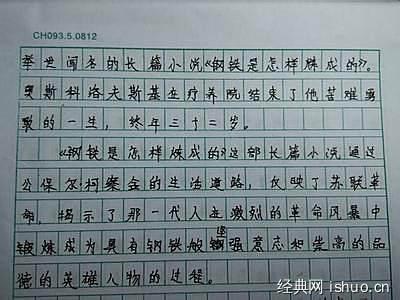 CH093.5.0812
举世闻名的长篇小说《钢铁是怎样炼成的》。
奥斯科洛夫斯基在疗养院结束了他苦难勇
敢的一生，终年三十二岁。
《钢铁是怎样炼成的》这部长篇小说通过
公保尔·柯察金的生活道路，反映了苏联革
命，揭示了那一代人在激烈的革命风暴中
锻炼成为具有钢铁般坚强意志和崇高的品
德的英雄人物的过程。
经典网 ishuo.cn